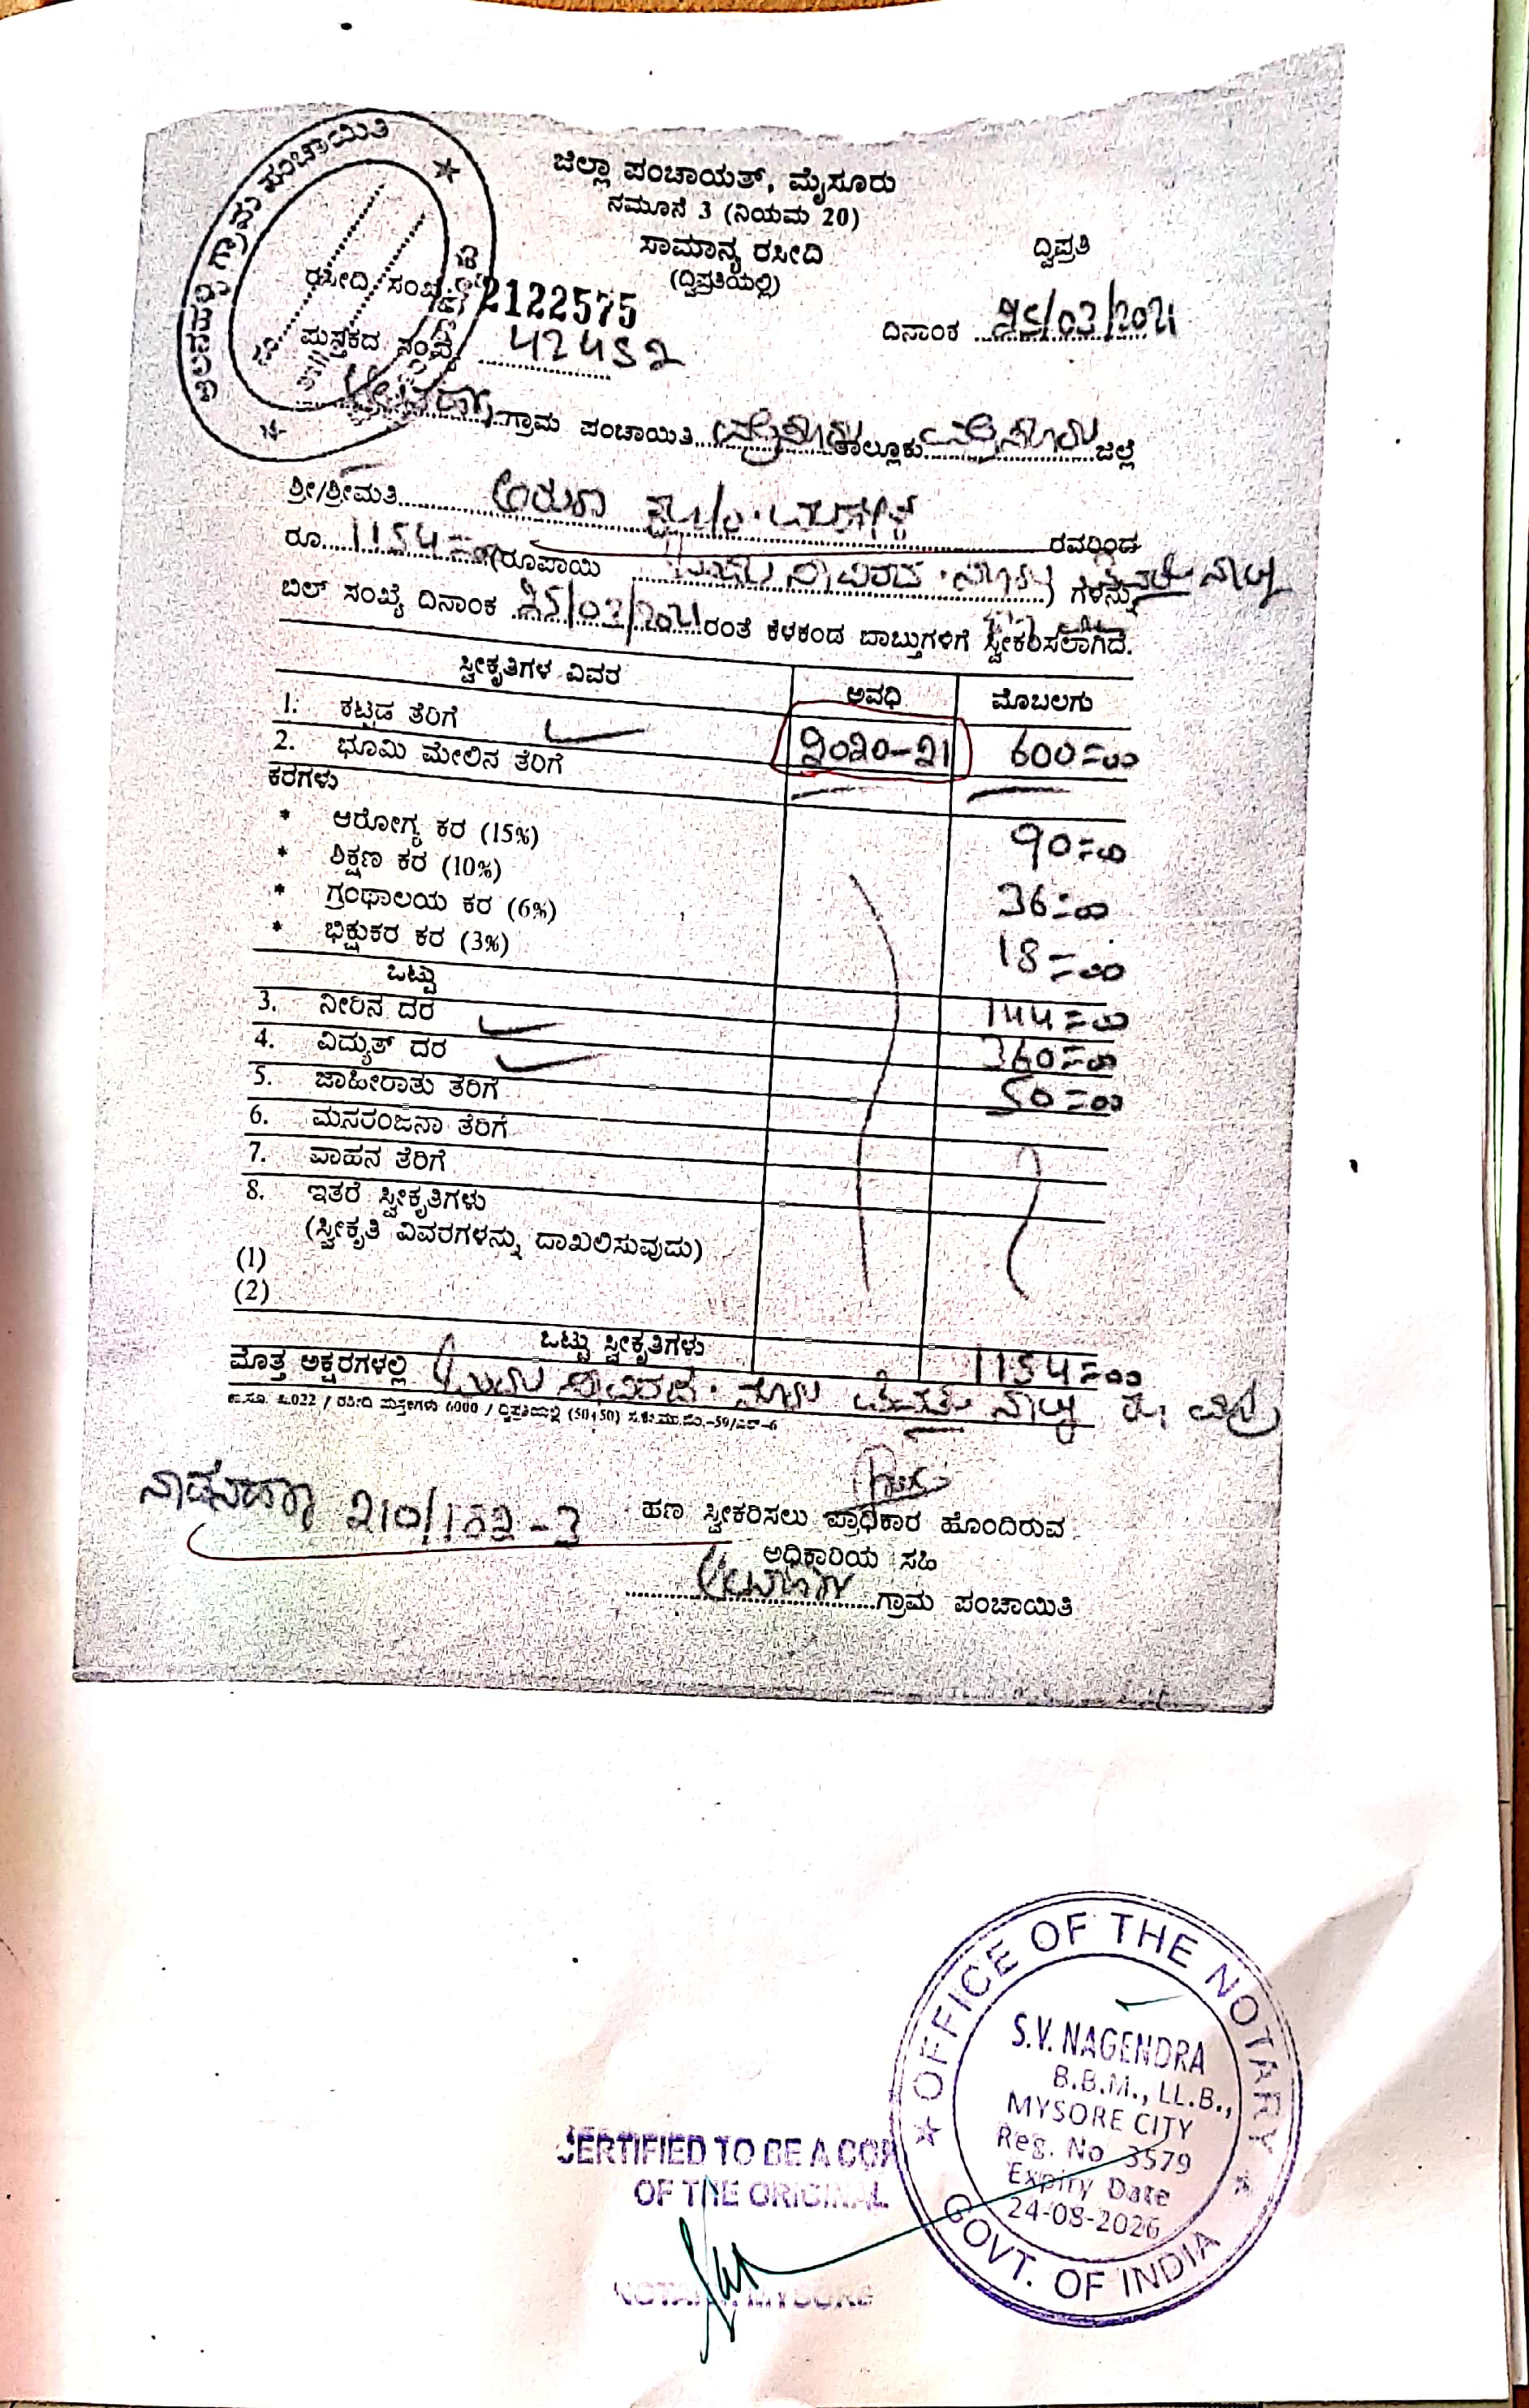 ಗ್ರಾಮ ಪಂಚಾಯಿತಿ
ಜಿಲ್ಲಾ ಪಂಚಾಯತ್, ಮೈಸೂರು
ನಮೂನೆ 3 (ನಿಯಮ 20)
ಸಾಮಾನ್ಯ ರಸೀದಿ
ದ್ವಿಪ್ರತಿ
(ದ್ವಿಪ್ರತಿಯಲ್ಲಿ)
ರಸೀದಿ ಸಂಖ್ಯೆ 2122575
ದಿನಾಂಕ 25/03/2021
ಪುಸ್ತಕದ ಸಂಖ್ಯೆ 42452
ಗ್ರಾಮ ಪಂಚಾಯಿತಿ ಮೈಸೂರು ತಾಲ್ಲೂಕು ಮೈಸೂರು ಜಿಲ್ಲೆ
ಶ್ರೀ/ಶ್ರೀಮತಿ
ರವರಿಂದ
ರೂ. 1154=00 (ರೂಪಾಯಿ ) ಗಳನ್ನು
ಬಿಲ್ ಸಂಖ್ಯೆ ದಿನಾಂಕ 25/03/2021 ರಂತೆ ಕೆಳಕಂಡ ಬಾಬ್ತುಗಳಿಗೆ ಸ್ವೀಕರಿಸಲಾಗಿದೆ.
ಸ್ವೀಕೃತಿಗಳ ವಿವರ ಅವಧಿ ಮೊಬಲಗು
1. ಕಟ್ಟಡ ತೆರಿಗೆ 2020-21 600=00
2. ಭೂಮಿ ಮೇಲಿನ ತೆರಿಗೆ
ಕರಗಳು
* ಆರೋಗ್ಯ ಕರ (15%) 90=00
* ಶಿಕ್ಷಣ ಕರ (10%)
* ಗ್ರಂಥಾಲಯ ಕರ (6%) 36=00
* ಭಿಕ್ಷುಕರ ಕರ (3%) 18=00
ಒಟ್ಟು 144=00
3. ನೀರಿನ ದರ 360=00
4. ವಿದ್ಯುತ್ ದರ 50=00
5. ಜಾಹೀರಾತು ತೆರಿಗೆ
6. ಮನರಂಜನಾ ತೆರಿಗೆ
7. ವಾಹನ ತೆರಿಗೆ
8. ಇತರೆ ಸ್ವೀಕೃತಿಗಳು
(ಸ್ವೀಕೃತಿ ವಿವರಗಳನ್ನು ದಾಖಲಿಸುವುದು)
(1)
(2)
ಒಟ್ಟು ಸ್ವೀಕೃತಿಗಳು 1154=00
ಮೊತ್ತ ಅಕ್ಷರಗಳಲ್ಲಿ
210/152-3
ಹಣ ಸ್ವೀಕರಿಸಲು ಪ್ರಾಧಿಕಾರ ಹೊಂದಿರುವ
ಅಧಿಕಾರಿಯ ಸಹಿ
ಗ್ರಾಮ ಪಂಚಾಯಿತಿ
OFFICE OF THE NOTARY
S.V. NAGENDRA
B.B.M., LL.B.,
MYSORE CITY
Reg. No 3579
Expiry Date
24-08-2026
GOVT. OF INDIA
CERTIFIED TO BE A COP
OF THE ORIGINAL
NOTARY MYSORE